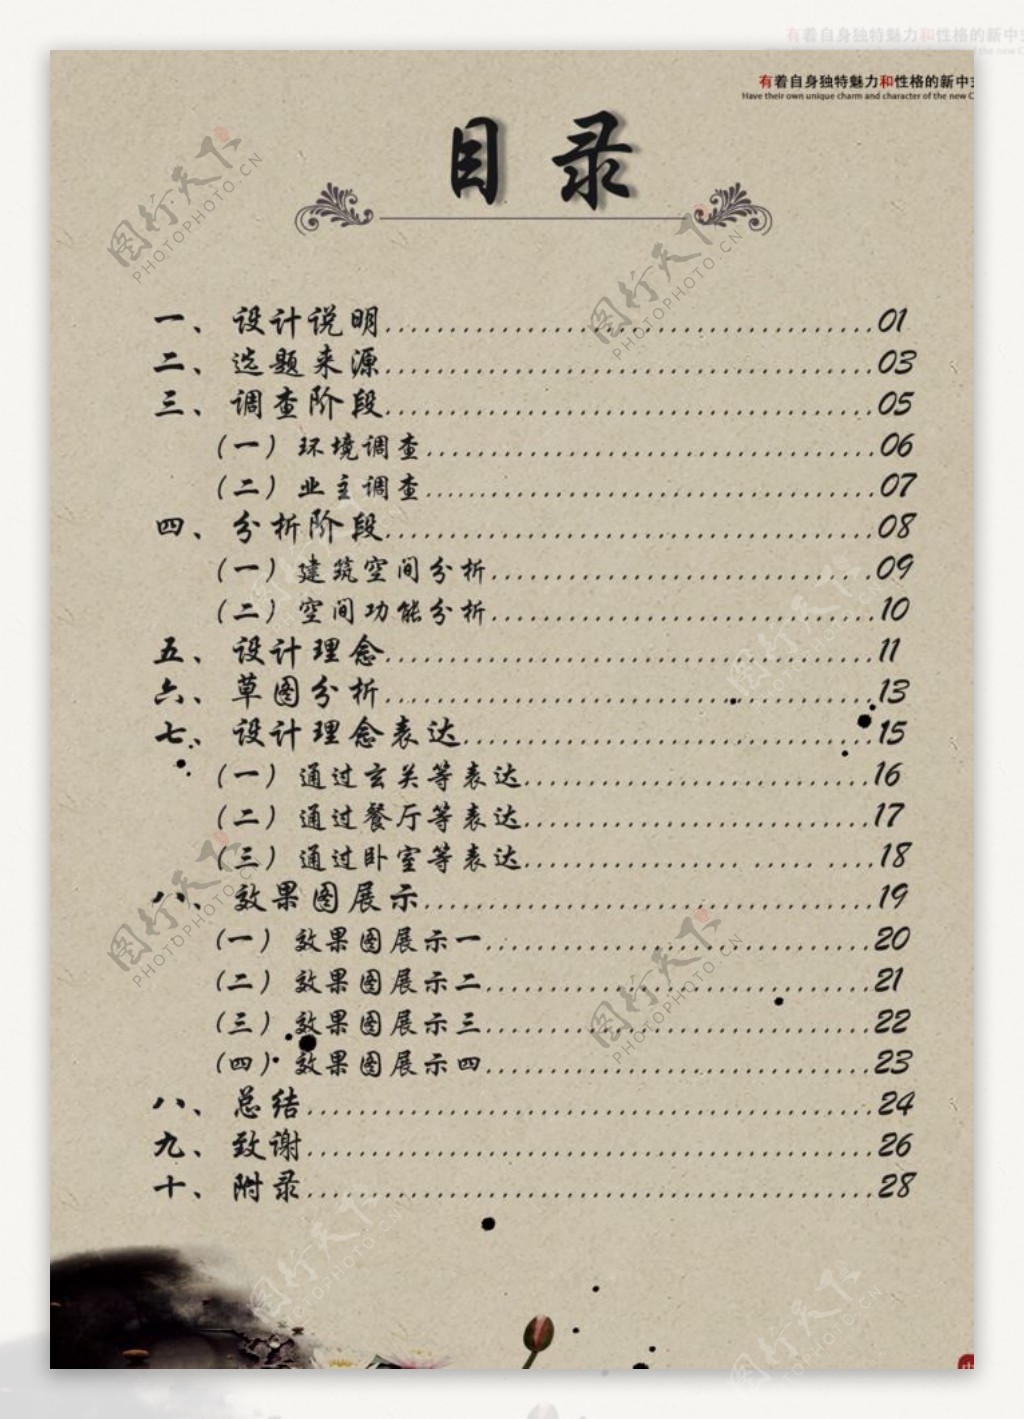 有着自身独特魅力和性格的新中
有着自身独特魅力和性格的新中
Have their own unique charm and character of the new C
目录
一、设计说明......................................01
二、选题来源......................................03
三、调查阶段......................................05
（一）环境调查...................................06
（二）业主调查...................................07
四、分析阶段......................................08
（一）建筑空间分析..............................09
（二）空间功能分析..............................10
五、设计理念......................................11
六、草图分析......................................13
七、设计理念表达................................15
（一）通过玄关等表达...........................16
（二）通过餐厅等表达...........................17
（三）通过卧室等表达................. ..... ....18
八、效果图展示...................................19
（一）效果图展示一..............................20
（二）效果图展示二..............................21
（三）效果图展示三..............................22
（四）效果图展示四..............................23
八、总结............................................24
九、致谢............................................26
十、附录............................................28
图行天下
PHOTOPHOTO.CN
图行天下
PHOTOPHOTO.CN
图行天下
PHOTOPHOTO.CN
图行天下
PHOTOPHOTO.CN